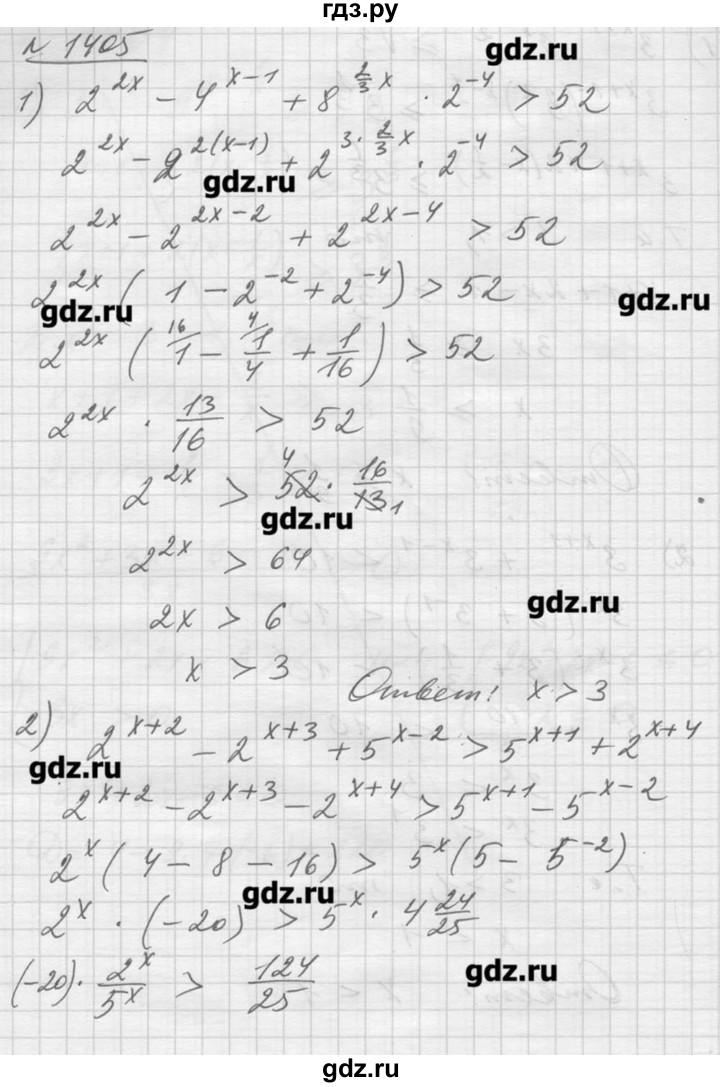 гдз.ру
№ 1405
gdz.ru
1) 2^{2x} - 4^{x-1} + 8^{\frac{2}{3}x} · 2^{-4} > 52
2^{2x} - 2^{2(x-1)} + 2^{3·\frac{2}{3}x} · 2^{-4} > 52
gdz.ru
2^{2x} - 2^{2x-2} + 2^{2x-4} > 52
2^{2x} ( 1 - 2^{-2} + 2^{-4} ) > 52
gdz.ru
gdz.ru
2^{2x} ( \frac{1}{1}^{16} - \frac{1}{4}^{4} + \frac{1}{16} ) > 52
2^{2x} · \frac{13}{16} > 52
2^{2x} > 52^{4} · \frac{16}{13_1}
gdz.ru
2^{2x} > 64
gdz.ru
2x > 6
x > 3
Ответ: x > 3
2) 2^{x+2} - 2^{x+3} + 5^{x-2} > 5^{x+1} + 2^{x+4}
gdz.ru
2^{x+2} - 2^{x+3} - 2^{x+4} > 5^{x+1} - 5^{x-2}
2^{x} ( 4 - 8 - 16 ) > 5^{x} ( 5 - 5^{-2} )
gdz.ru
2^{x} · (-20) > 5^{x} · 4\frac{24}{25}
gdz.ru
(-20) · \frac{2^{x}}{5^{x}} > \frac{124}{25}
gdz.ru